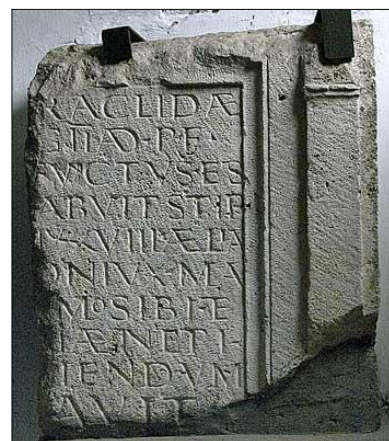 RACLIDÆ
G II AD·PF·
VICTVS·ES
ABVIT STIP
VIII PÆL
ONIVX·MA
MO SIBI·E
IÆ NEPTI
IENDVM
AVIT